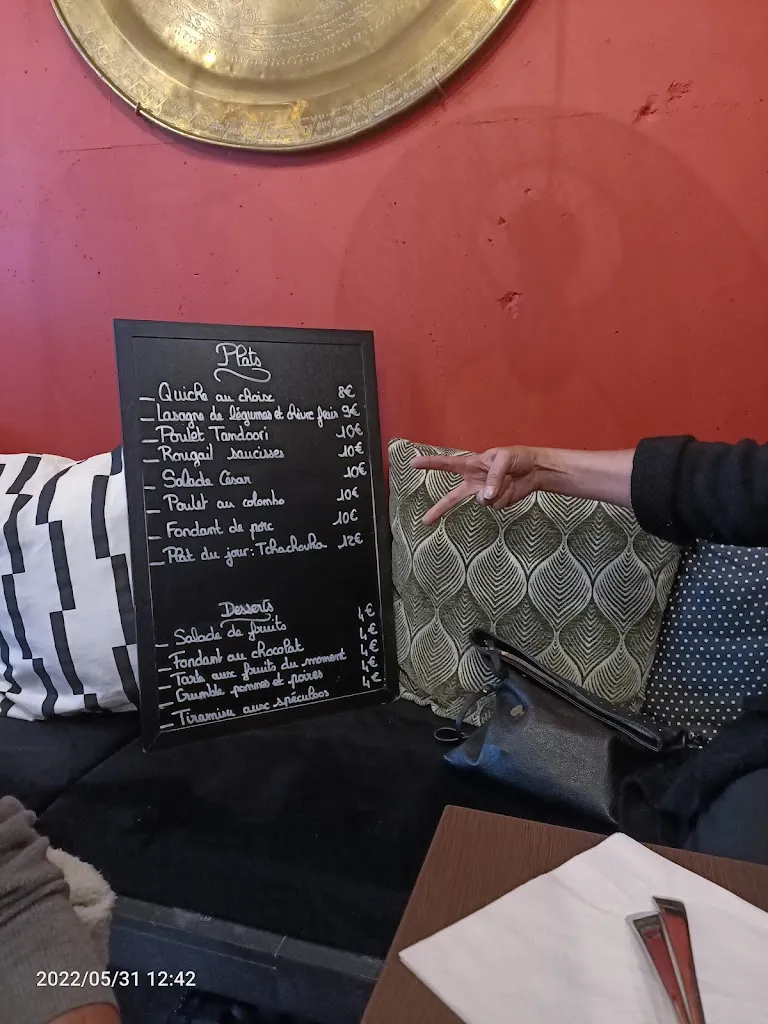 Plats
— Quiche au choix 8€
— Lasagne de légumes et chèvre frais 9€
— Poulet Tandoori 10€
— Rougail saucisses 10€
— Salade César 10€
— Poulet au colombo 10€
— Fondant de porc 10€
— Plat du jour: Tchachouka 12€
Desserts
— Salade de fruits 4€
— Fondant au chocolat 4€
— Tarte aux fruits du moment 4€
— Crumble pommes et poires 4€
— Tiramisu aux spéculoos 4€
2022/05/31 12:42